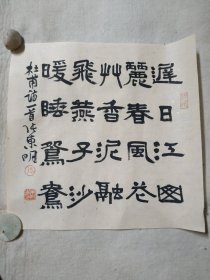 遲日江山
麗春風花
艸香泥融
飛燕子沙
暖睡鴛鴦
杜甫詩一首東明